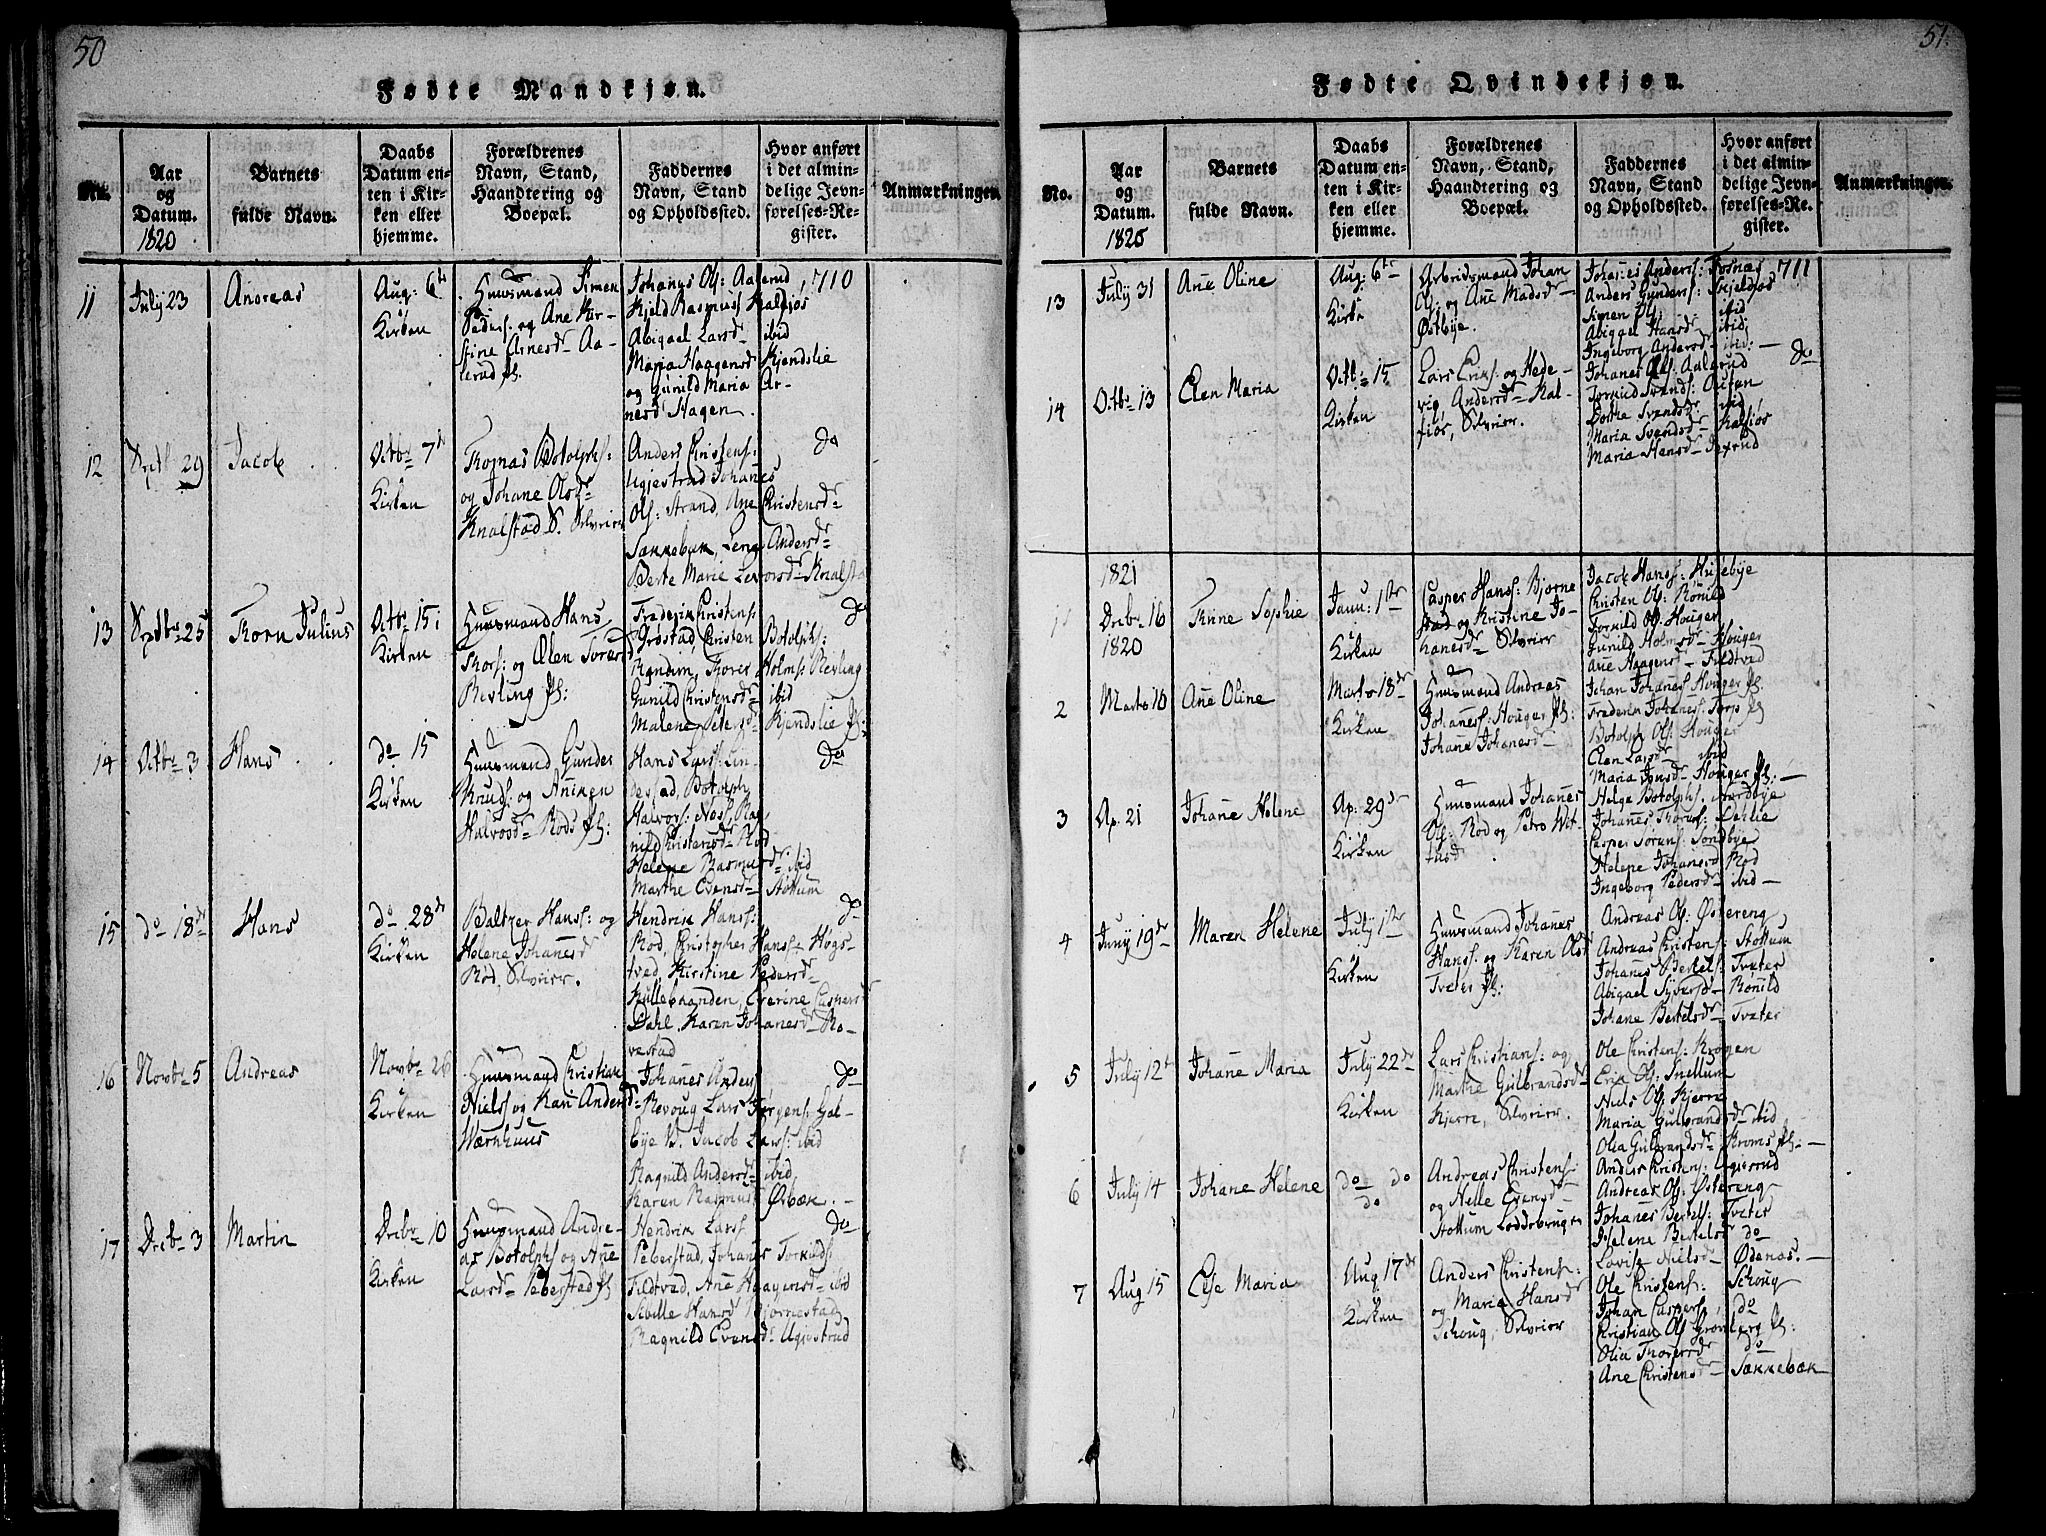 50
Fødte Mandkjøn.
No.
Aar
og
Datum.
1820
Barnets
fulde Navn.
Daabs
Datum en-
ten i Kir-
ken eller
hjemme.
Forældrenes
Navn, Stand,
Haandtering og
Boepæl.
Faddernes
Navn, Stand
og Opholdssted.
Hvor anført
i det almin-
delige Jevn-
førelses-Re-
gister.
Anmærkninger.
11
July 23
Andreas
Aug: 6te
Kirken
Huusmand Simen
Peders: og Ane Kir-
stine Arnesd- Aa-
lerud
Johanes Ols: Aalerud
Kjeld Rasmus Kalsiøs
Abigael Larsd- ibid
Maria Haagensd Kjendslie
og Gunild Maria Ar-
nesd Hagen.
710
12
Septb 29
Jacob
Octbr 7de
Kirken
Thomas Botolphs:
og Johane Olsd-
Knalstad S. Selveier
Anders Christens:
Ugjestrad Johanes
Ols: Strand, Ane Christensd-
Sækkebæk, Lene Andersd-
Berte Marie Levorsd- Knalsta
do
13
Septbr 25
Thorn Julius
Octbr 15
Kirken
Huusmand Hans
Thors: og Elen Torersd
Revling
Frederik Christens:
Grøstad, Christen Botolphs:
Randem, Thorer Holms: Revling
Gunild Christensd- ibid
Malene Petersd Kjendslie
do
14
Octbr 3
Hans
do 15
Kirken
Huusmand Gunder
Knuds: og Aniken
Halvorsd- Røds
Hans Lars: Lin-
destad, Botolph
Halvors: Næss, Rag-
nild Christensd- Rød
Helene Rasmusd- ibid
Marthe Evensd- Stottum
do
15
do 18de
Hans
do 28de
Kirken
Baltzer Hans: og
Helene Johanesd
Rød, Selveier.
Hendrik Hans:
Rød, Christopher Hans: Høgs-
tved, Kirstine Pedersd-
Killebaanden, Everine Caspersd
Dahl, Karen Johanesd- Ro-
vestad
do
16
Novbr 5
Andreas
Novbr 26
Kirken
Huusmand Christian
Niels: og Kari Andersd-
Wærnhuus
Johanes Anders
Revoug Lars Jørgens: Hal-
bye V. Jacob Lars: ibid
Ragnild Andersd- ibid
Karen Rasmus Ørbæk.
do
17
Decbr 3
Martin
Decbr 10
Kirken
Huusmand Andre-
as Botolphs og Ane
Larsd- Peberstad
Hendrik Lars
Peberstad, Johanes Torkilds
Fieldtved, Ane Haagensd- ibid
Sibille Hansd Bjørnestad
Ragnild Evensd: Ugjestrud
do
51.
Fødte Qvindekjøn.
No.
Aar
og
Datum.
1820
Barnets
fulde Navn.
Daabs
Datum en-
ten i Kir-
ken eller
hjemme.
Forældrenes
Navn, Stand,
Haandtering og
Boepæl.
Faddernes
Navn, Stand
og Opholdssted.
Hvor anført
i det almin-
delige Jevn-
førelses-Re-
gister.
Anmærkninger.
13
July 31
Ane Oline
Aug: 6te
Kirke
Arbeidsmand Johan
Ols: og Ane Madsd-
Østbye.
Johanes Anders: Fosnæs
Anders Gunders: Skjelsøs
Simen Ols: ibid
Abigael Hansd- ibid:
Ingeborg Andersd- ibid:
711
14
Octbr 13
Elen Maria
Octb: 15
Kirken
Lars Eriks: og Hede-
vig Andersd- Kal-
siøs, Selveier.
Johanes Ols: Aalerud
Torkild Svends:
Dorthe Svendsd: ibid
Maria Svendsd- Kalsiøs
Maria Hansd-
do
1821
1
Decbr 16
1820
Trine Sophie
Janu: 1ste
Kirken
Casper Hans: Bjørne
stad og Kristine Jo-
hanesd- Selveier
Jacob Hans: Husebye
Christen Ols: Rønild
Torkild Ols: Houger
Gunild Holmsd- Houger
Ane Haagensd- Fieldtved
2
Marts 10
Ane Oline
Marts 18de
Kirken
Huusmand Andreas
Johaness: Houger
Johane Johanesd-
Johan Johaness: Houger
Frederik Johaness: Torp
Botolph Ols: Houger
Elen Larsd- ibid
Maria Jensd- Houger
3
Ap. 21
Johane Helene
Ap: 29de
Kirken
Huusmand Johanes
Ols: Rød og Petro Wit-
tusd
Helge Botolphs. Nordbye
Johanes Thorers: Dehlie
Casper Sørens: Sondbye
Helene Johanesd Rød
Ingeborg Pedersd- ibid
4
Juny 19de
Maren Helene
July 1ste
Kirken
Huusmand Johanes
Hans: og Karen Olsd
Tveter
Andreas Ols: Østereng
Andreas Christens: Stottum
Johanes Bertels: Tveter
Abigael Syversd- Rønild
Johane Bertelsd- Tveter
5
July 12te
Johane Maria
July 22de
Kirken
Lars Christians: og
Marthe Gulbrandsd-
Kjerre, Selveier.
Ole Christens: Krogen
Erik Ols: Snellum
Niels Ols: Kjerre
Maria Gulbrandsd- ibid
Olia Gulbrandsd- Kroms
6
July 14
Johane Helene
do do
do
Andreas Christens:
og Helle Evensd-
Stottum Loddebruger
Anders Christens: Ugjesrud
Andreas Ols: Østereng
Johanes Bertels: Tveter
Helene Bertelsd do
Lovise Nielsd- Ødenæs.
7
Aug 15
Else Maria
Aug 17de
Kirken
Anders Christens:
og Maria Hansd
Schoug, Selveier
Ole Christens: Schoug
Johan Caspers: do
Christian Ols Grønberg
Olia Thorersd do
Ane Christensd- Sækkebæk